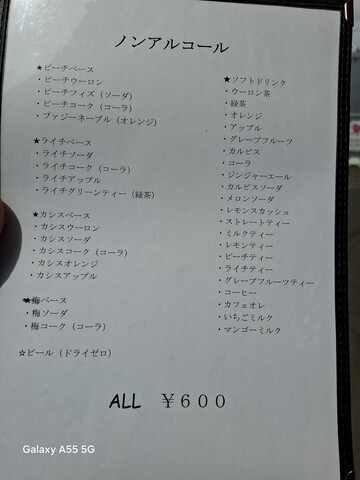 ノンアルコール
★ピーチベース
・ピーチウーロン
・ピーチフィズ（ソーダ）
・ピーチコーク（コーラ）
・ファジーネーブル（オレンジ）
★ライチベース
・ライチソーダ
・ライチコーク（コーラ）
・ライチアップル
・ライチグリーンティー（緑茶）
★カシスベース
・カシスウーロン
・カシスソーダ
・カシスコーク（コーラ）
・カシスオレンジ
・カシスアップル
★梅ベース
・梅ソーダ
・梅コーク（コーラ）
☆ビール（ドライゼロ）
★ソフトドリンク
・ウーロン茶
・緑茶
・オレンジ
・アップル
・グレープフルーツ
・カルピス
・コーラ
・ジンジャーエール
・カルピスソーダ
・メロンソーダ
・レモンスカッシュ
・ストレートティー
・ミルクティー
・レモンティー
・ピーチティー
・ライチティー
・グレープフルーツティー
・コーヒー
・カフェオレ
・いちごミルク
・マンゴーミルク
ALL ￥６００
Galaxy A55 5G